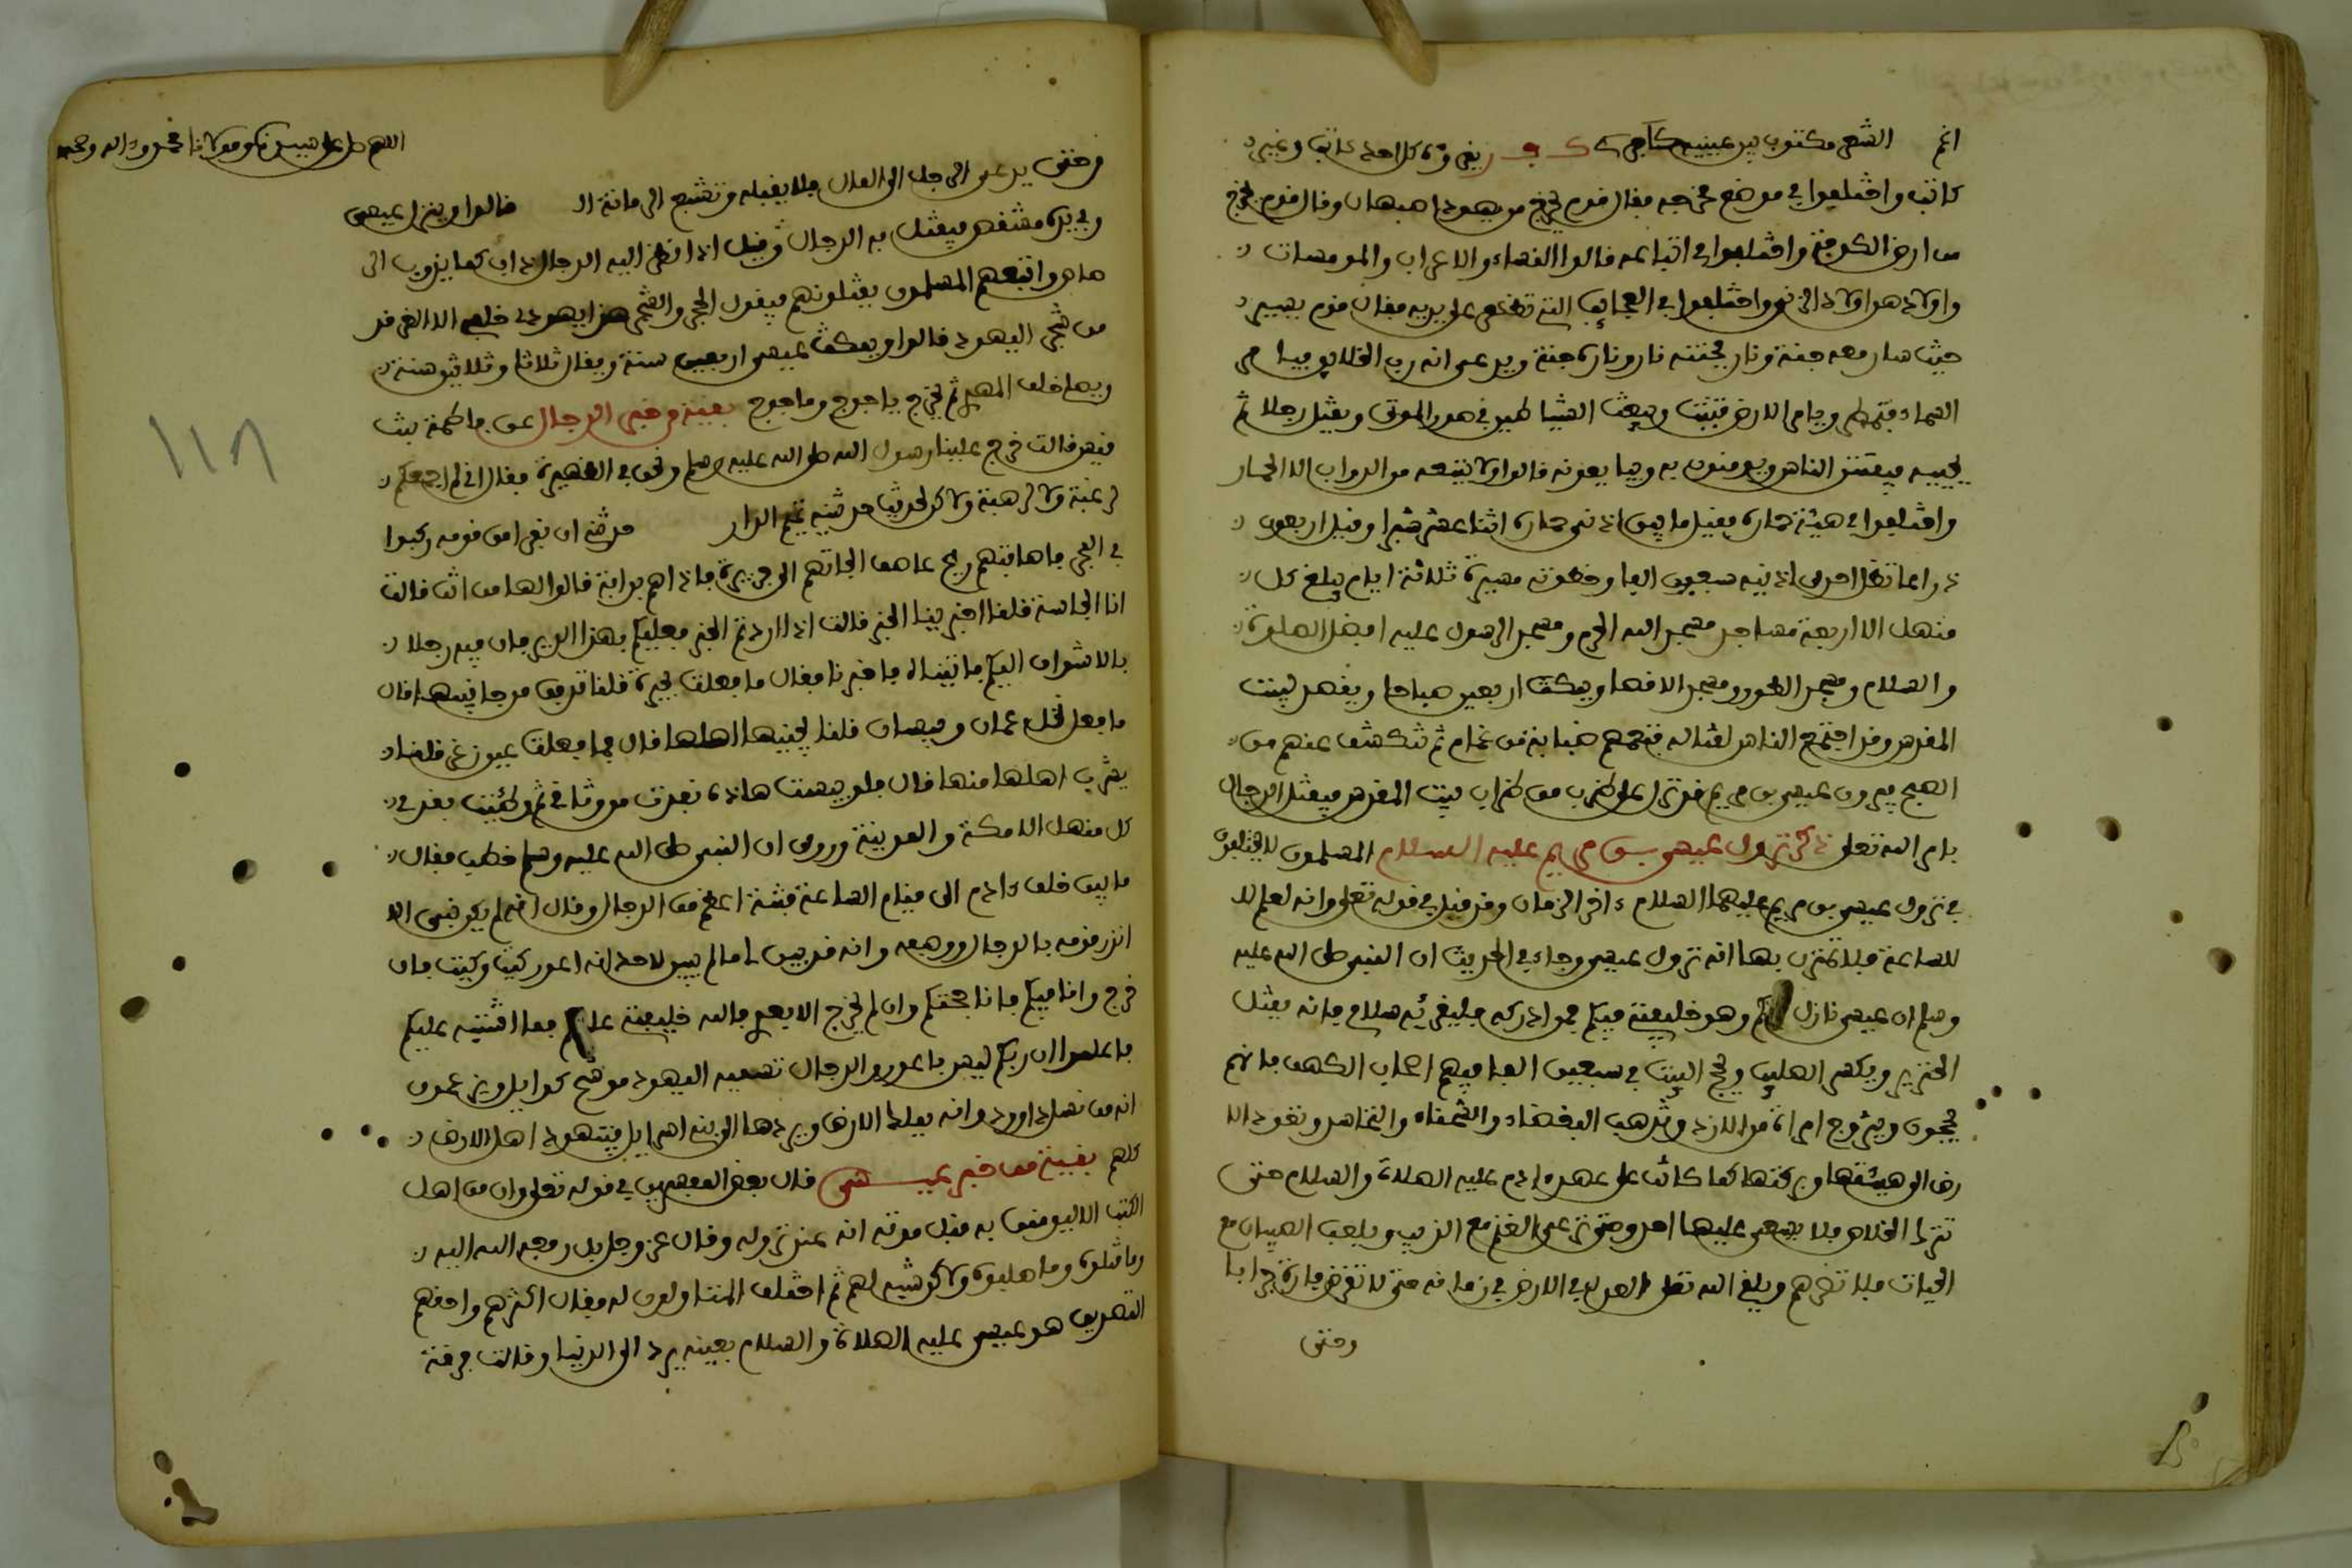 اثم الشعر مكتوب بين عينيه كافر ك ف ر يقرؤه كل احد كاتب وغير
كاتب واختلفوا في موضع مخرجه فقال قوم يخرج من يهودا اصبهان وقال قوم يخرج
من ارض الكوفة واختلفوا في اتباعه قالوا النساء والاعراب والمومسات
واولاد هو اولاد الزنى واختلفوا في العجايب التي تظهر على يديه فقال قوم يسير
حيث سار معه جنة ونار فجنته نار وناره جنة ويدعى انه رب الخلايق فيامر
السماء فتمطر ويامر الارض فتنبت ويبعث الشياطين في صور الموتى ويقتل رجلا ثم
يحييه فيفتتن الناس ويومنون به ويبايعونه قالوا ولا يتبعه من الدواب الا الحمار
واختلفوا في هيئة حماره فقيل ما بين اذني حماره اثنا عشر شبرا وقيل اربعون
ذراعا تظل احدى اذنيه سبعين الفا وخطوته مسيرة ثلاثة ايام يبلغ كل
منهل الا اربعة مساجد مسجد الله الحرم ومسجد الرسول عليه افضل الصلوة
والسلام ومسجد الطور ومسجد الاقصا ويمكث اربعين صباحا ويقصد بيت
المقدس وقد اجتمع الناس لقتاله فتعمهم ضبابة من غمام ثم تنكشف عنهم من
الصبح فيرون عيسى بن مريم قد نزل على ضرب من ضراب بيت المقدس فيقتل الدجال
بامر الله تعلى ذكر نزول عيسى بن مريم عليه السلام المسلمون لا يختلفون
في نزول عيسى بن مريم عليهما السلام ءاخر الزمان وقد قيل في قوله تعلى وانه لعلم للا
للساعة فلا تمترن بها انه نزول عيسى وجاء في الحديث ان النبي صلى الله عليه
وسلم ان عيسى نازل فيكم وهو خليفتي فيكم فمن ادركه فليقرئه سلامي فانه يقتل
الخنزير ويكسر الصليب ويحج البيت في سبعين الفا فيهم اصحاب الكهف فانهم
يحجون ويتزوج امراة من الازد وتذهب البغضاء والشحناء والتحاسد وتعود الا
رض الى هيئتها وبركتها كما كانت على عهد ءادم عليه الصلاة والسلام حتى
تترك القلاص فلا يسعى عليها احد وحتى ترعى الغنم مع الذيب ويلعب الصبيان مع
الحيات فلا تضرهم ويلقى الله تعلى العدل في الارض في زمانه حتى لا تقرض فارة جرابا
وحتى
اللهم صل على سيدنا ومولانا محمد وءاله وصحبه
وحتى يدعى الرجل الى المال فلا يقبله وتشبع الرمانة ال قالوا وينزل عيسى
وفي يده مشقص فيقتل به الدجال وقيل اذا نظر اليه الدجال ذاب كما يذوب الر
صاص واتبعهم المسلمون يقتلونهم فيقول الحجر والشجر هذا يهودي خلفي الا الغرقد
من شجر اليهود قالوا ويمكث عيسى اربعين سنة ويقال ثلاثا وثلاثين سنة
ويصلي خلف المهدي ثم يخرج ياجوج وماجوج بقية من خبر الدجال عن فاطمة بنت
قيس قالت خرج علينا رسول الله صلى الله عليه وسلم ونحن في الظهيرة فقال اني لم اجمعكم
لرغبة ولا لرهبة ولاكن لحديث حدثنيه تميم الدار حدثني ان نفرا من قومه ركبوا
في البحر فاصابتهم ريح عاصف الجاتهم الى جزيرة فاذا هم بدابة قالوا لها من انت قالت
انا الجاسة قلنا اخبرينا الخبر قالت اذا اردتم الخبر فعليكم بهذا الدير فان فيه رجلا
بالاشواق اليكم فاتيناه فاخبرنا فقال ما فعلت بحيرة قلنا تدفق من جانبيها قال
ما فعل نخل عمان وبيسان قلنا يجنيها اهلها قال فما فعلت عيون زغر قلنا
يشرب اهلها منها قال فلو يبست هاذه نفذت من وثاقي ثم وطئت بقدمي
كل منهل الا مكة والمدينة وروي ان النبي صلى الله عليه وسلم خطب فقال
ما بين خلق ءادم الى قيام الساعة فتنة اعظم من الدجال وقال انه لم يكن نبي الا
انذر قومه بالدجال ووصفه وانه قد بين لي ما لم يبين لاحد انه اعور كيت وكيت فان
خرج وانا فيكم فانا حجتكم وان لم يخرج الا بعدي فالله خليفتي عليكم فما اشتبه عليكم
فاعلموا ان ربكم ليس باعور والدجال تسميه اليهود موشح كوايل ويزعمون
انه من نسل داوود وانه يملك الارض ويردها الى بني اسراييل فيتهود اهل الارض
كلهم بقية من خبر عيسى قال بعض المفسرين في قوله تعلى وان من اهل
الكتب الا ليومنن به قبل موته انه عند نزوله وقال عز وجل بل رفعه الله اليه
وما قتلوه وما صلبوه ولاكن شبه لهم ثم اختلف المتاولون له فقال اكثرهم واحقهم
التصديق هو عيسى عليه الصلاة والسلام بعينه يرد الى الدنيا وقالت فرقة
١١٨